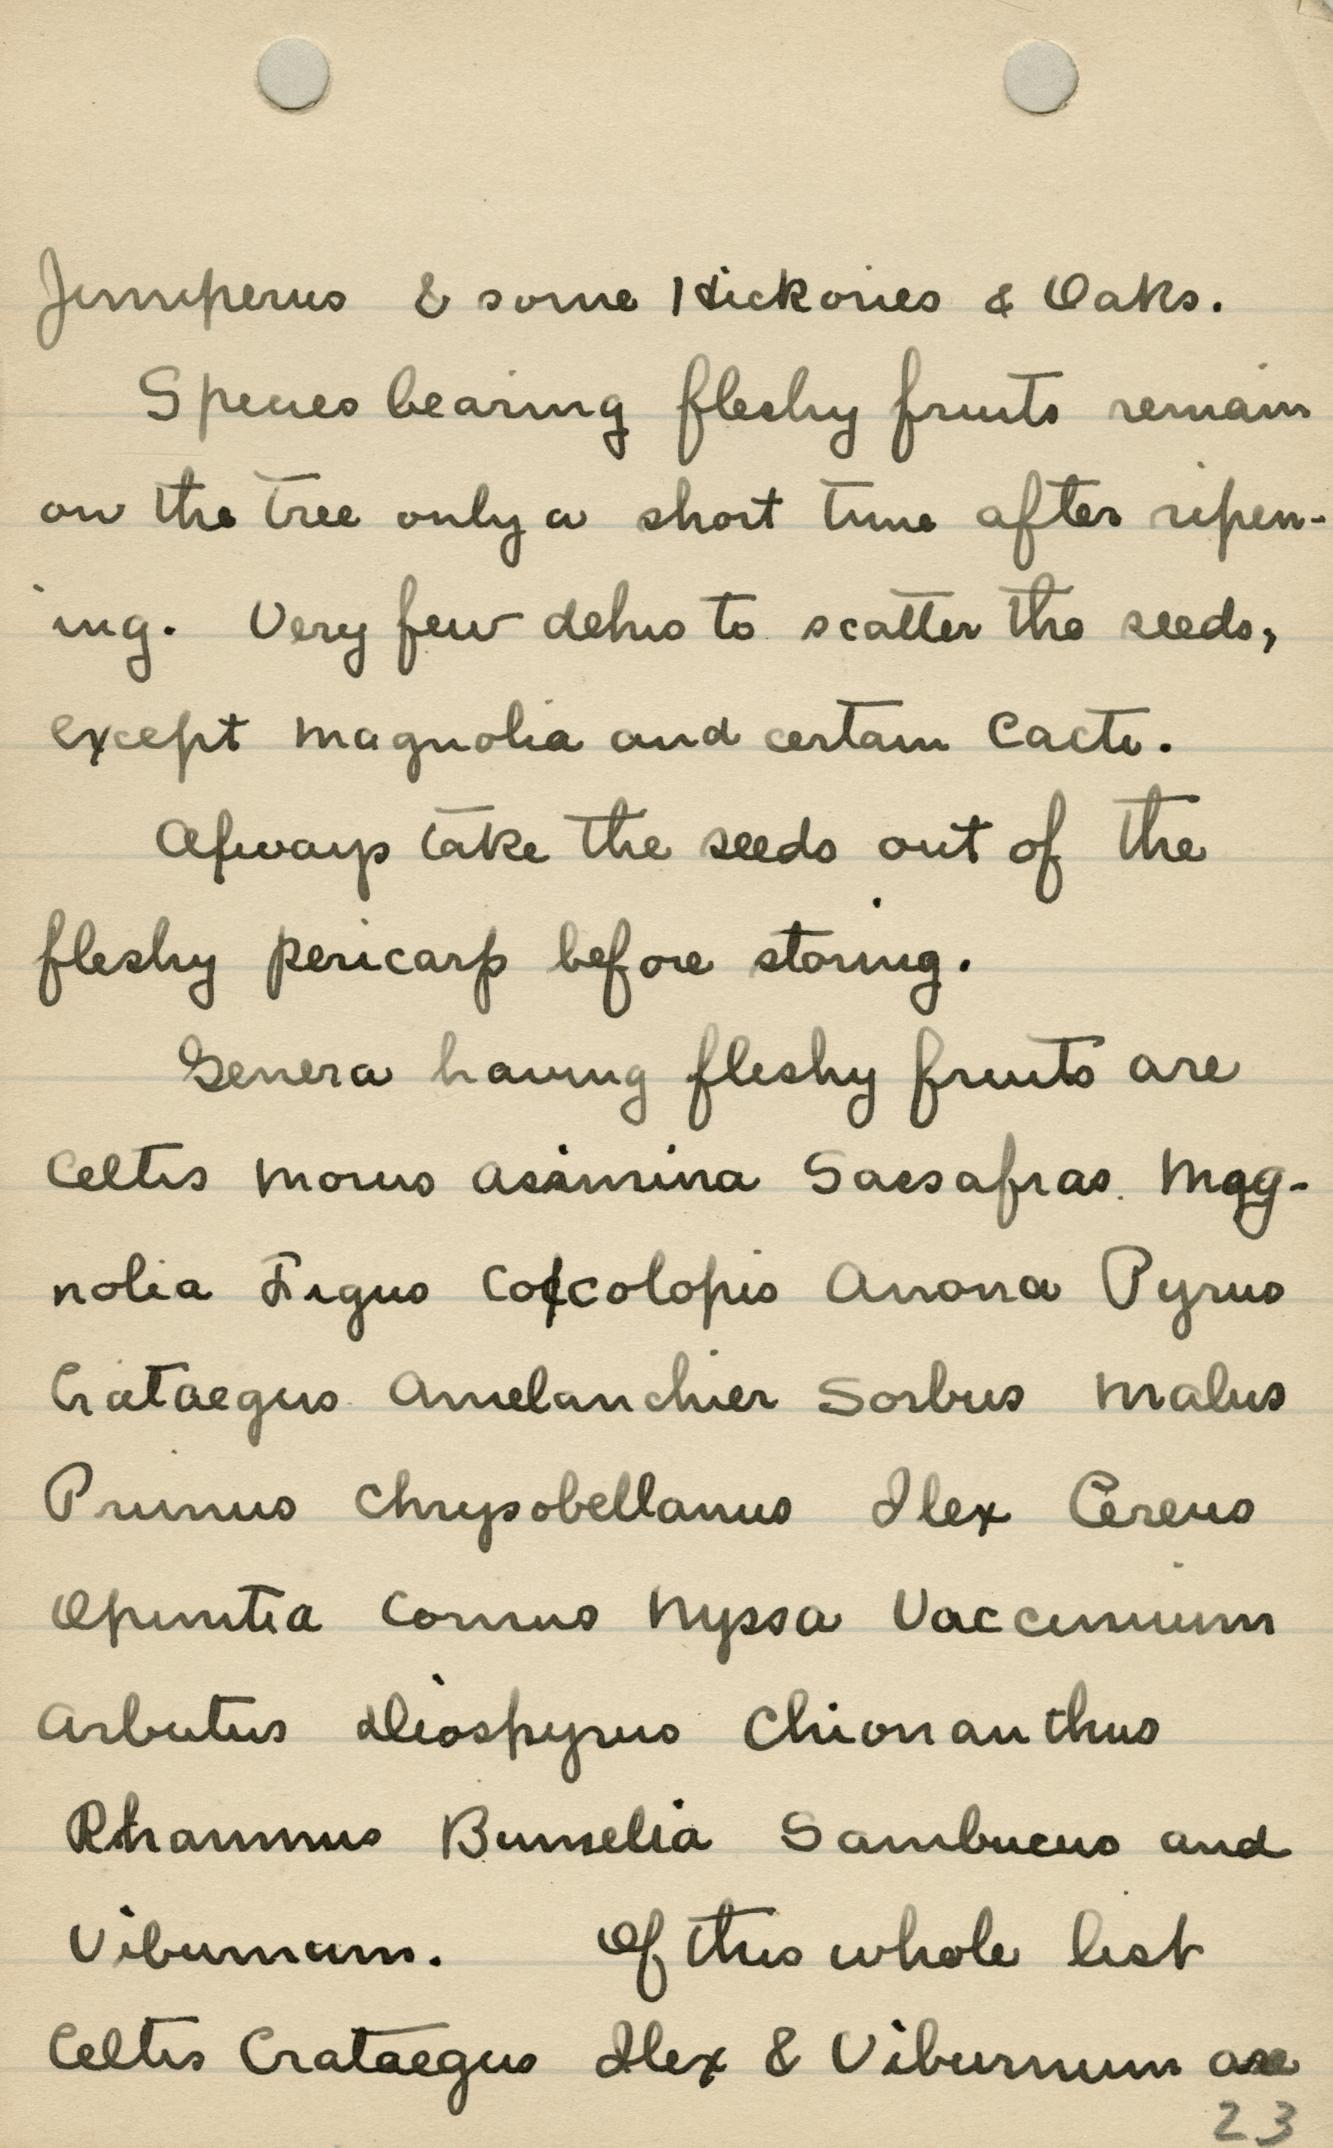 Juniperus & some Hickories & Oaks.
Species bearing fleshy fruits remain
on the tree only a short time after ripen-
ing. Very few dehis to scatter the seeds,
except magnolia and certain Cacti.
Always take the seeds out of the
fleshy pericarp before storing.
Genera having fleshy fruits are
Celtis Morus Asimina Sassafras Mag-
nolia Figus Coccolopis Anona Pyrus
Crataegus Amelanchier Sorbus Malus
Prunus Chrysobellanus Ilex Cereus
Opuntia Cornus Nyssa Vaccinium
Arbutus Diospyrus Chionanthus
Rhamnus Bumelia Sambucus and
Viburnum. Of this whole list
Celtis Crataegus Ilex & Viburnum are
23